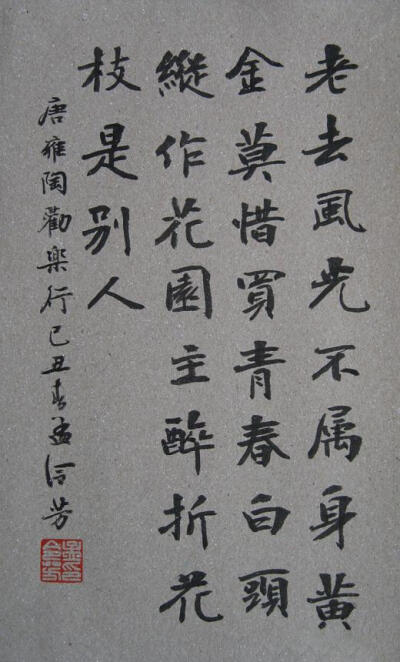 老去風光不属身黄
金莫惜買青春白頭
縱作花園主醉折花
枝是别人
唐雍陶勸樂行己丑春孟令芳